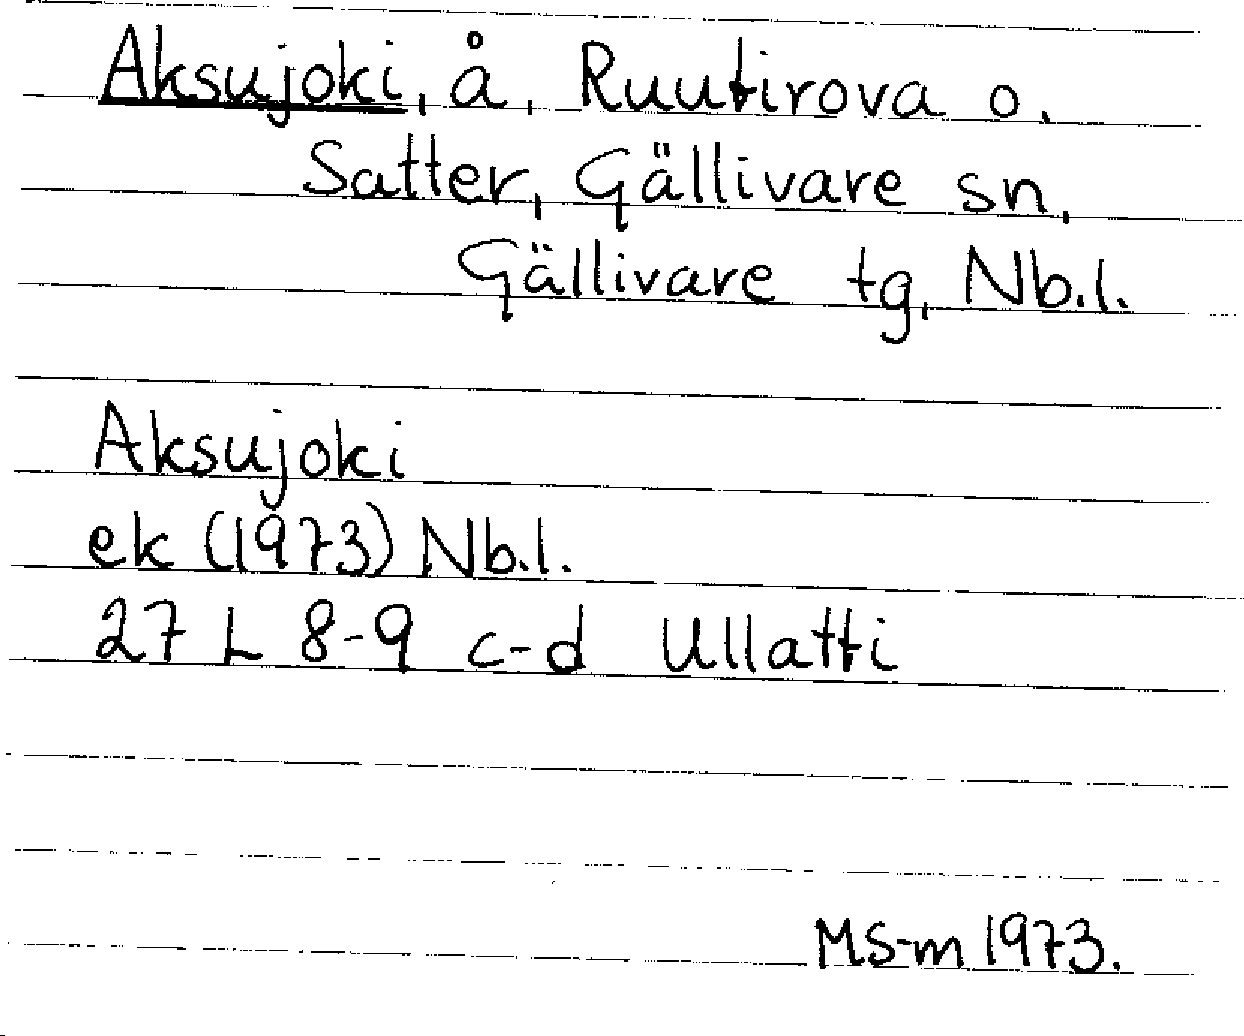 Aksujoki, å, Ruutirova o.
Satter, Gällivare sn,
Gällivare tg, Nb.l.
Aksujoki
ek (1973) Nb.l.
27 L 8-9 c-d Ullatti
MS-m 1973.